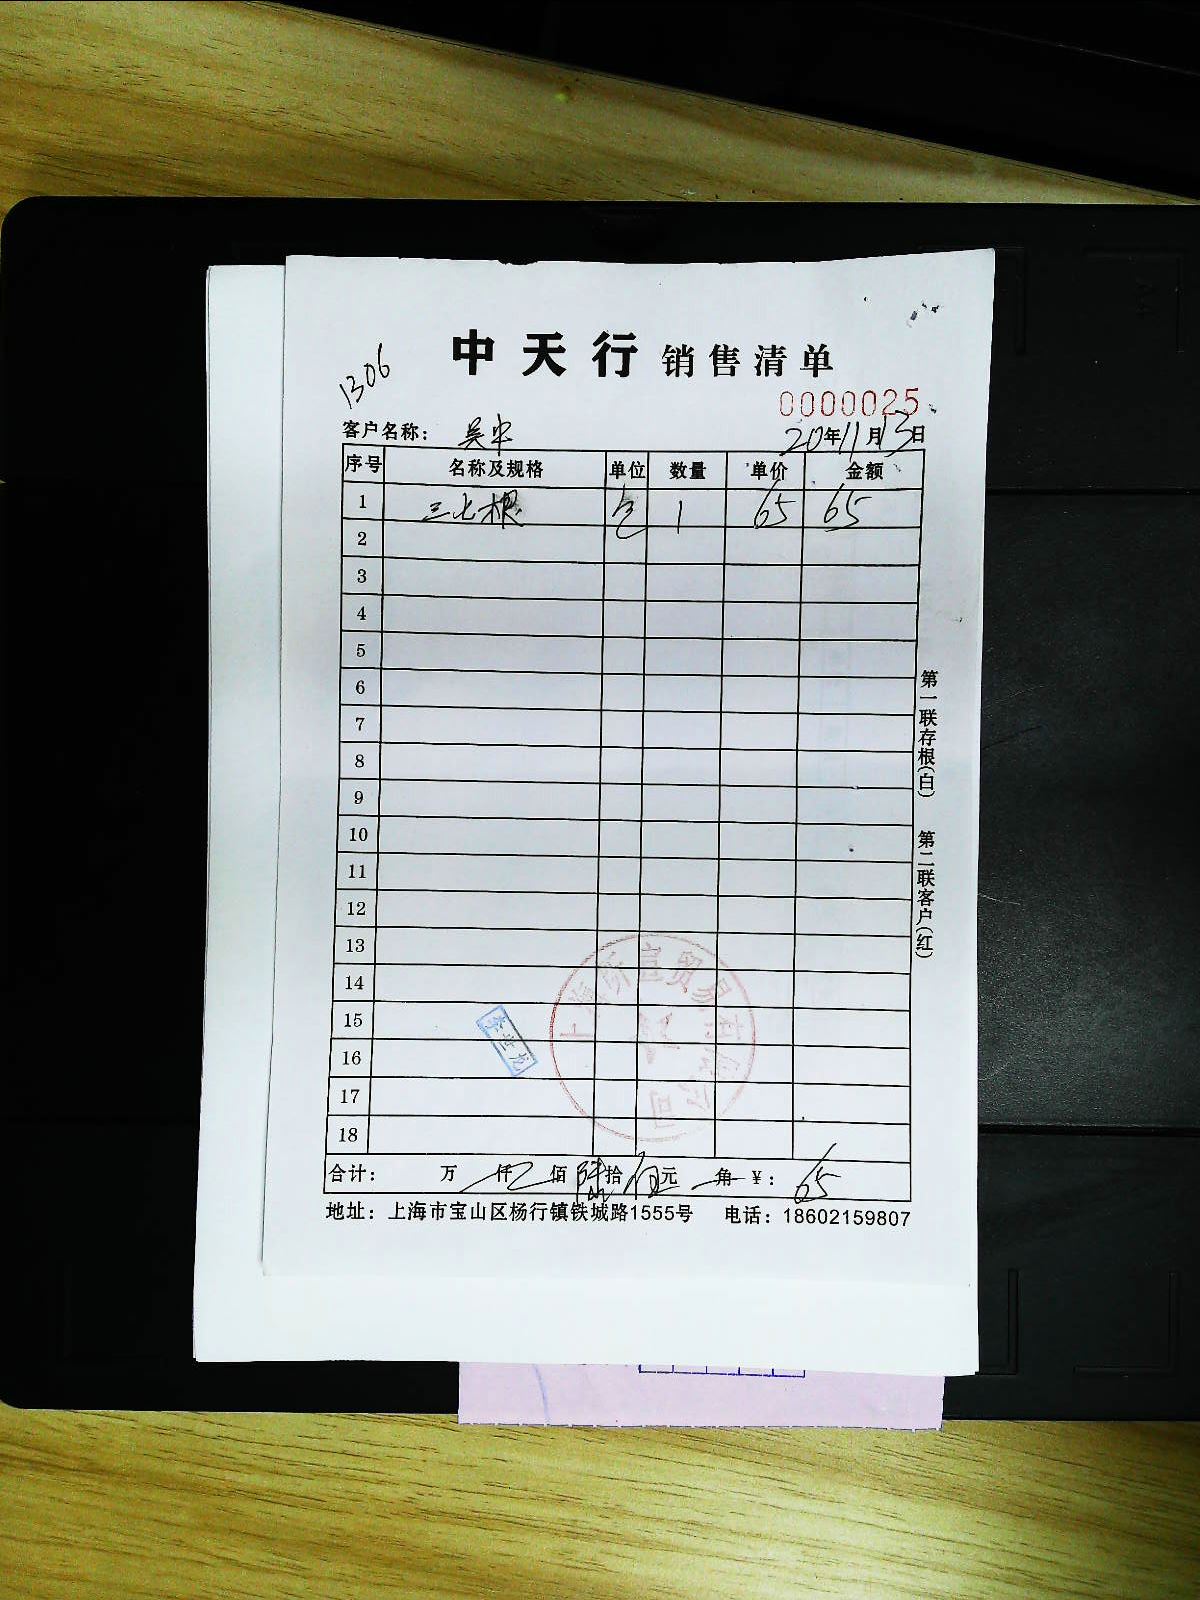 中天行 销售清单
1306
0000025
客户名称： 吴中 20年11月13日
序号 名称及规格 单位 数量 单价 金额
1 三七根 包 1 65 65
2
3
4
5
6
7
8
9
10
11
12
13
14
15
16
17
18
上海 宜贸易有限公司
李世龙
合计： 万 仟 佰 陆拾 伍元 角 ￥： 65
地址：上海市宝山区杨行镇铁城路1555号 电话：18602159807
第一联存根(白) 第二联客户(红)